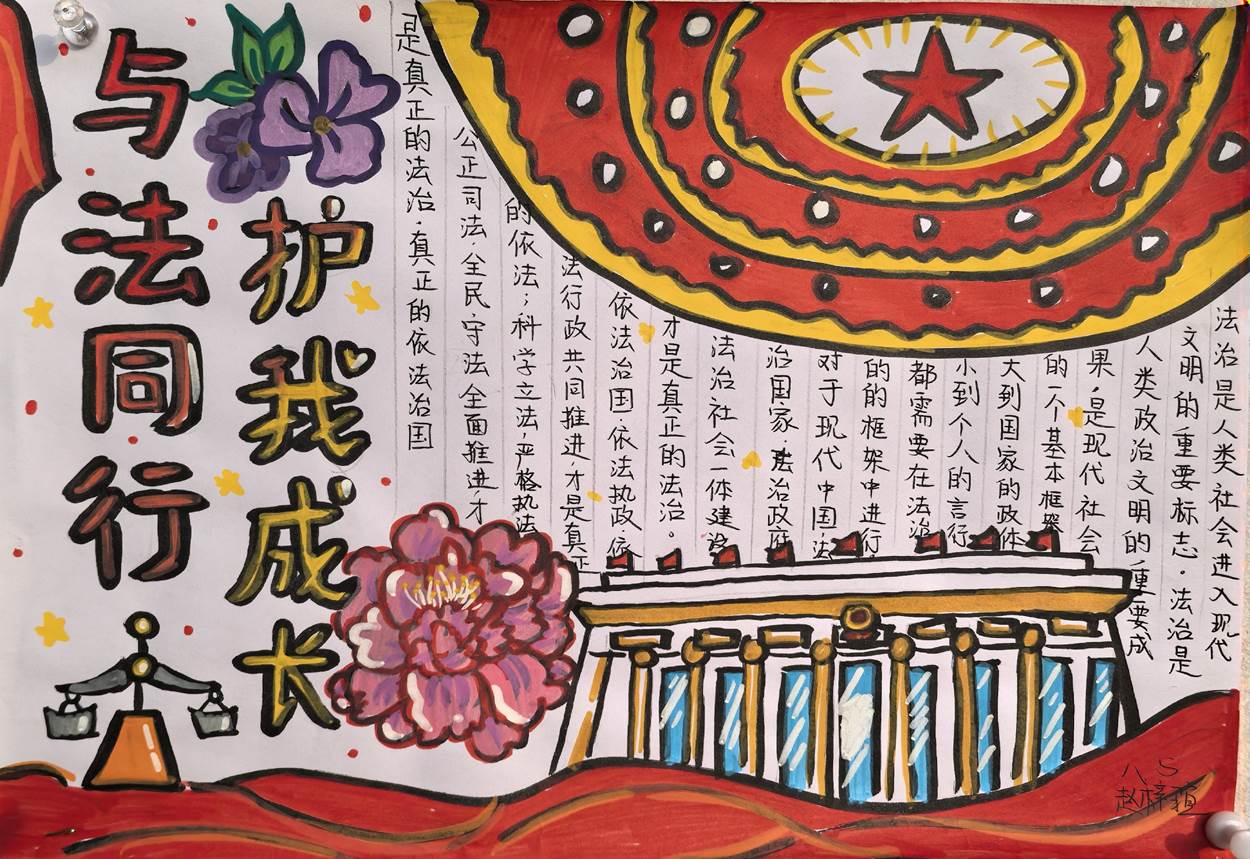 与法同行
护我成长
法治是人类社会进入现代
文明的重要标志.法治是
人类政治文明的重要成
果,是现代社会
的一个基本框架
大到国家的政体
小到个人的言行
都需要在法治
的的框架中进行
对于现代中国,法
治国家.法治政府
法治社会一体建设
才是真正的法治。
依法治国依法执政依
法行政共同推进,才是真正
的依法;科学立法,严格执法
公正司法,全民守法全面推进,才
是真正的法治.真正的依法治国
八5
赵梓